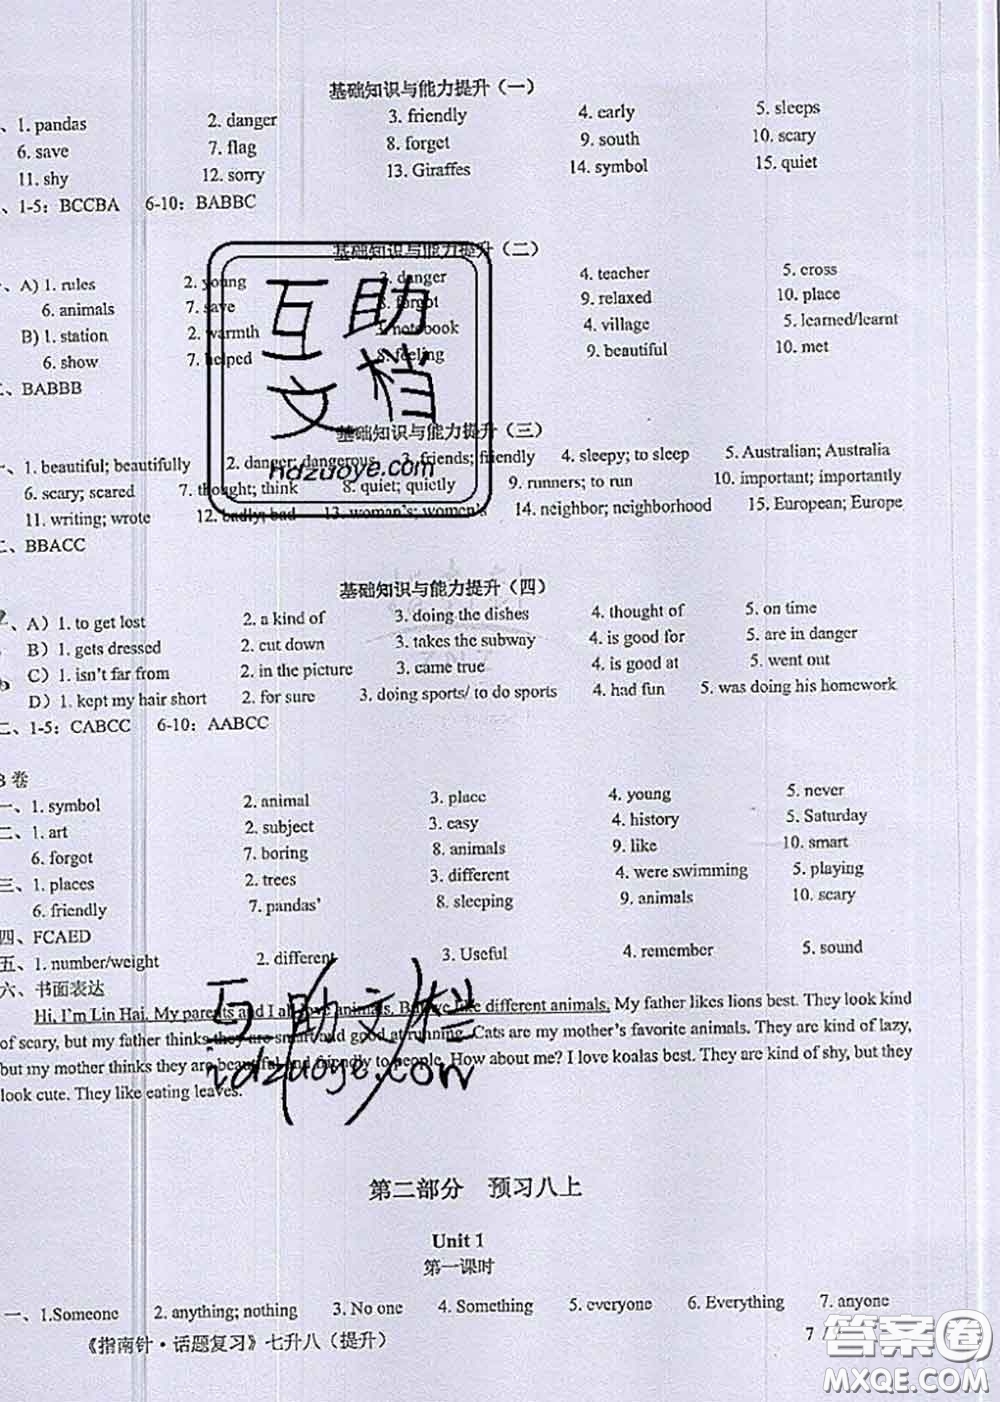 基础知识与能力提升（一）
、1. pandas 2. danger 3. friendly 4. early 5. sleeps
6. save 7. flag 8. forget 9. south 10. scary
11. shy 12. sorry 13. Giraffes 14. symbol 15. quiet
、1-5: BCCBA 6-10: BABBC
基础知识与能力提升（二）
、A) 1. rules 2. young 3. danger 4. teacher 5. cross
6. animals 7. save 8. forgot 9. relaxed 10. place
B) 1. station 2. warmth 3. notebook 4. village 5. learned/learnt
6. show 7. helped 8. feeling 9. beautiful 10. met
二、BABBB
互助
文档
hdzuoye.com
基础知识与能力提升（三）
一、1. beautiful; beautifully 2. danger; dangerous 3. friends; friendly 4. sleepy; to sleep 5. Australian; Australia
6. scary; scared 7. thought; think 8. quiet; quietly 9. runners; to run 10. important; importantly
11. writing; wrote 12. badly; bad 13. woman's; women's 14. neighbor; neighborhood 15. European; Europe
二、BBACC
基础知识与能力提升（四）
、A）1. to get lost 2. a kind of 3. doing the dishes 4. thought of 5. on time
B）1. gets dressed 2. cut down 3. takes the subway 4. is good for 5. are in danger
C）1. isn't far from 2. in the picture 3. came true 4. is good at 5. went out
D）1. kept my hair short 2. for sure 3. doing sports/ to do sports 4. had fun 5. was doing his homework
二、1-5: CABCC 6-10: AABCC
B 卷
一、1. symbol 2. animal 3. place 4. young 5. never
二、1. art 2. subject 3. easy 4. history 5. Saturday
6. forgot 7. boring 8. animals 9. like 10. smart
三、1. places 2. trees 3. different 4. were swimming 5. playing
6. friendly 7. pandas' 8. sleeping 9. animals 10. scary
四、FCAED
五、1. number/weight 2. different 3. Useful 4. remember 5. sound
六、书面表达
Hi, I'm Lin Hai. My parents and I all love animals. But we like different animals. My father likes lions best. They look kind
of scary, but my father thinks they are smart and good at running. Cats are my mother's favorite animals. They are kind of lazy,
but my mother thinks they are beautiful and friendly to people. How about me? I love koalas best. They are kind of shy, but they
look cute. They like eating leaves.
互助文档
hdzuoye.com
第二部分 预习八上
Unit 1
第一课时
一、1.Someone 2. anything; nothing 3. No one 4. Something 5. everyone 6. Everything 7. anyone
《指南针·话题复习》七升八（提升） 7 /
答案圈
MXQE.COM